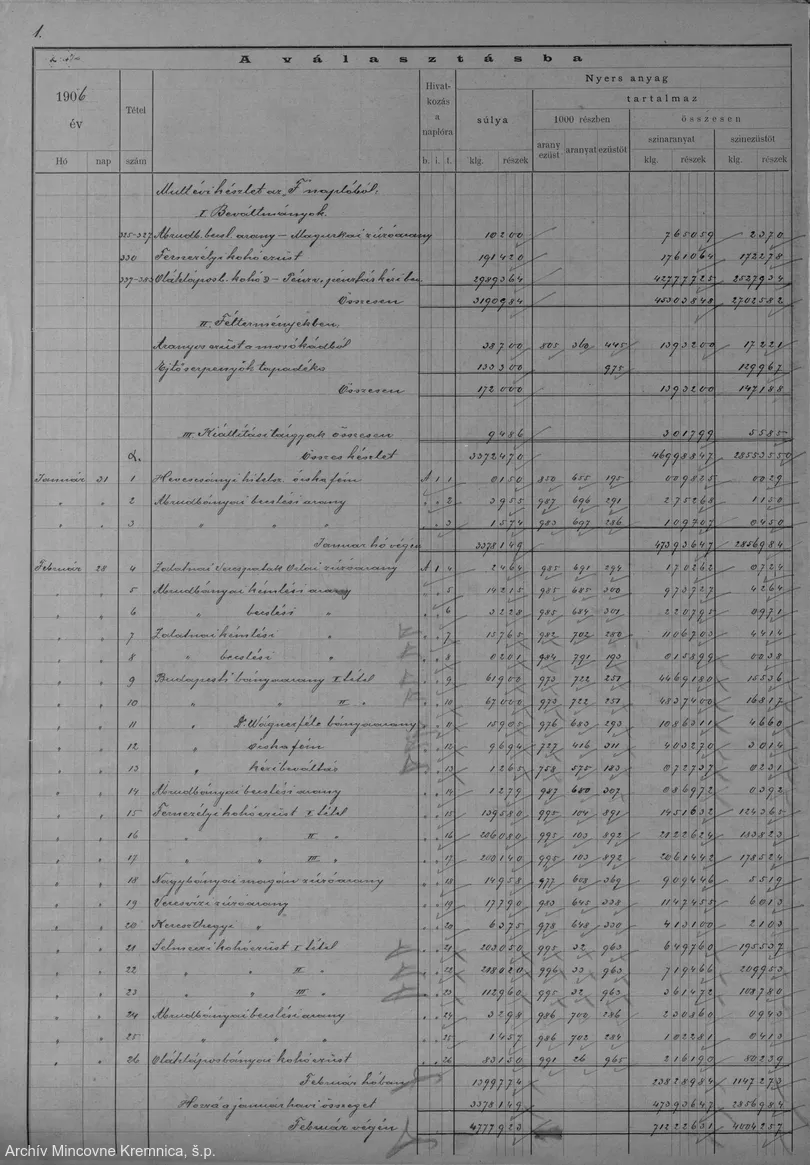 1.
A választásba
1906 év
Hó nap
Tétel szám
Hivatkozás a naplóra
b. i. t.
Nyers anyag
súlya
klg. részek
tartalmaz
1000 részben
arany ezüst aranyat ezüstöt
összesen
színaranyat
klg. részek
színezüstöt
klg. részek
Multévi készlet az "F" naplóból:
I. Beváltmányok.
325-327 Abrudb. becsl. arany – Magurkai zúzóarany 10200 765059 2370
330 Fernezélyi kohóezüst 191420 1761064 172278
337-383 Oláhláposb. kohó 2989364 42777725 2527934
Összesen 3190984 45303848 2702582
II. Félterményekben.
Aranyos ezüst a mosókádból 38700 805 360 445 1393200 17221
Ejtőserpenyők tapadéka 133300 975 129967
Összesen 172000 1393200 147188
III. Kiállítási tárgyak összesen 9486 301799 5585
Összes készlet 3372470 46998847 2855355
Január 31 1 óishafém A 1 1 0150 850 655 195 009825 0029
" " 2 Abrudbányai becslési arany " " 2 3955 987 696 291 275268 1150
" " 3 " " " " " 3 1574 983 697 286 109707 0450
Január hó végén 3378149 47393647 2856984
Február 28 4 Zalatnai Verespatak Orlai zúzóarany A 1 4 2464 985 691 294 170262 0724
" " 5 Abrudbányai kémlési arany " " 5 14215 985 685 300 973727 4264
" " 6 " becslési " " " 6 3228 985 684 301 220795 0971
" " 7 Zalatnai kémlési " " " 7 15765 982 702 280 1106703 4414
" " 8 " becslési " " " 8 0201 984 791 193 015899 0038
" " 9 Budapesti bányaarany I tétel " " 9 61900 973 722 251 4469180 15536
" " 10 " " II " " " 10 67000 973 722 251 4837400 16817
" " 11 " Dr. Wágnerféle bányaarany " " 11 15905 976 683 293 1086311 4660
" " 12 " óishafém " " 12 9694 727 416 311 403270 3014
" " 13 " kézi beváltás " " 13 1265 758 575 183 072737 0231
" " 14 Abrudbányai becslési arany " " 14 1279 987 680 307 086972 0392
" " 15 Fernezélyi kohóezüst I tétel " " 15 139580 995 104 891 1451632 124365
" " 16 " " II " " " 16 206080 995 103 892 2122624 183823
" " 17 " " III " " " 17 200140 995 103 892 2061442 178524
" " 18 Nagybányai magán zúzóarany " " 18 14958 977 608 369 909446 5519
" " 19 Veresvízi zúzóarany " " 19 17790 983 645 338 1147455 6013
" " 20 Kereszthegyi " " " 20 6375 978 648 330 413100 2103
" " 21 Selmeczi kohóezüst I tétel " " 21 203050 995 32 963 649760 195537
" " 22 " " II " " " 22 218020 996 33 963 719466 209953
" " 23 " " III " " " 23 112960 995 32 963 361472 108780
" " 24 Abrudbányai becslési arany " " 24 3298 986 700 286 230860 0943
" " 25 " " " " " 25 1457 986 702 284 102281 0413
" " 26 Oláhláposbányai kohóezüst " " 26 83150 991 26 965 216190 80239
Február hóban 1399774 23828984 1147273
Hozzá a januárhavi összeget 3378149 47393647 2856984
Február végén 4777923 71222631 4004257
Archív Mincovne Kremnica, š.p.